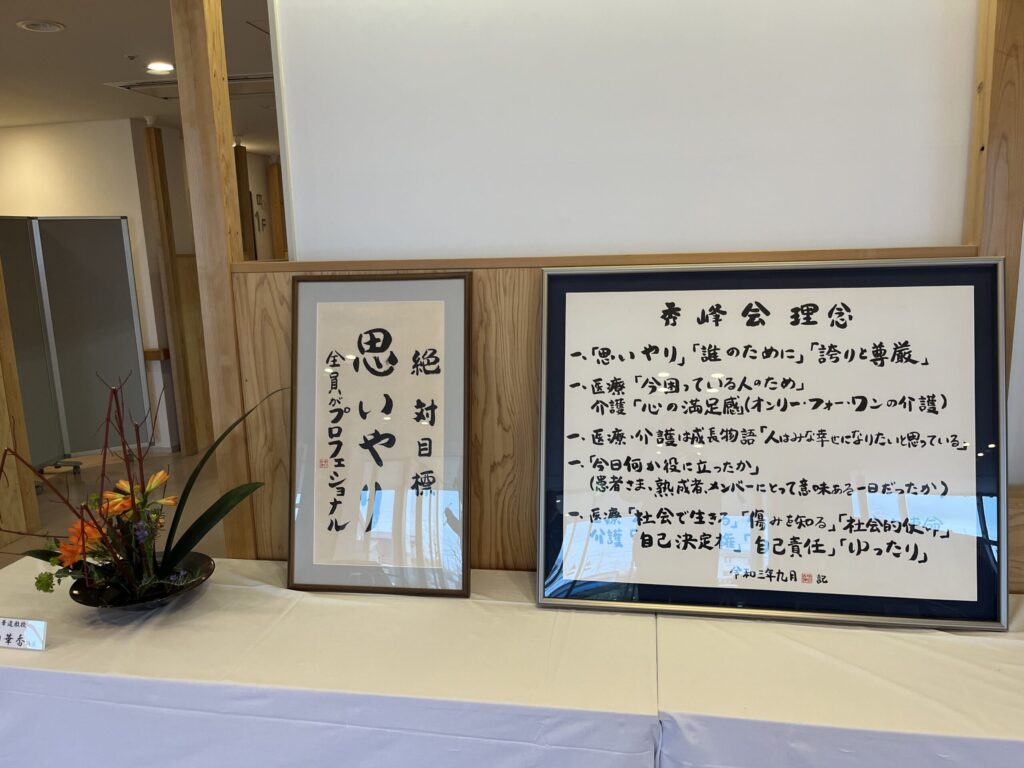 1F
絶対目標
思いやり
全員がプロフェショナル
秀峰会理念
一、「思いやり」「誰のために」「誇りと尊厳」
一、医療「今困っている人のため」
介護「心の満足感」(オンリー・フォー・ワンの介護)
一、医療・介護は成長物語「人はみな幸せになりたいと思っている」
一、「今日何か役に立ったか」
(患者さま、熟成者、メンバーにとって意味ある一日だったか)
一、医療「社会で生きる」「傷みを知る」「社会的使命」
介護「自己決定権」「自己責任」「ゆったり」
令和三年九月 記
華道教授
華香